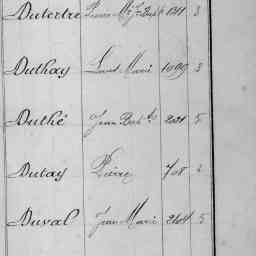 Dutertre Pierre Me 1311 3
Duthoy Louis Marie 1099 3
Duthé Jean Bapte 2021 5
Dutay Pierre 708
Duval Jean Marie 2404 5